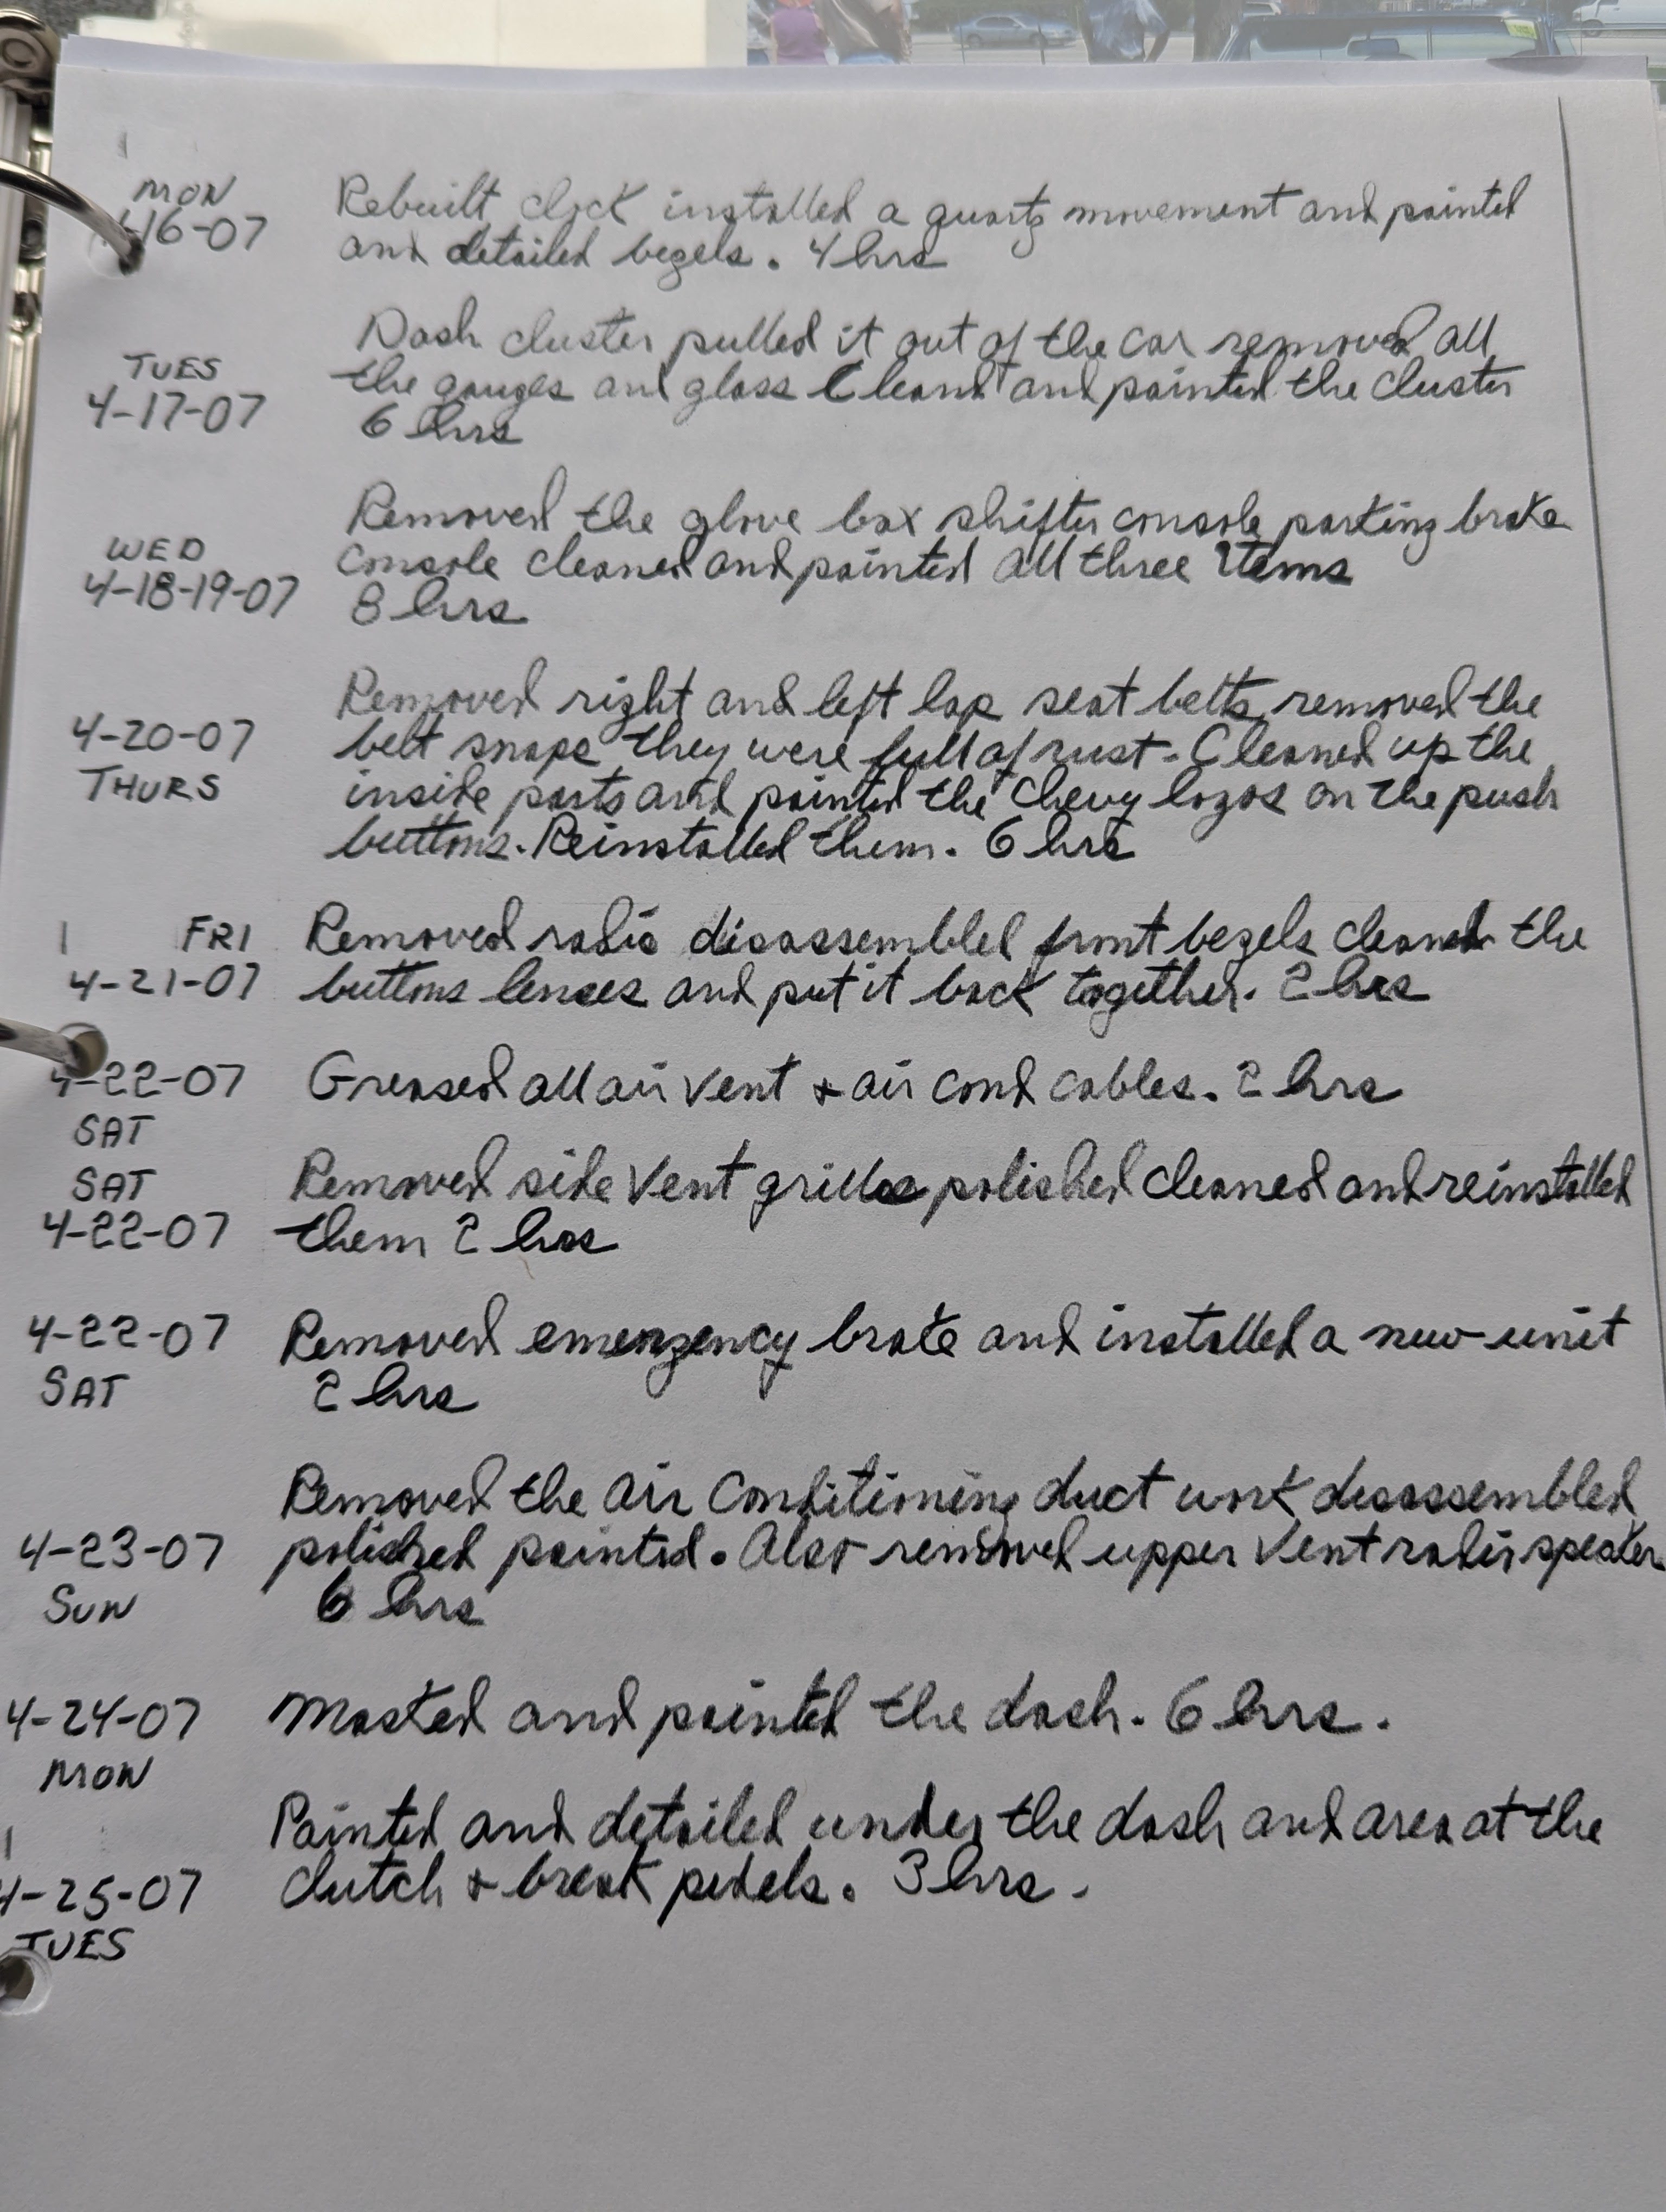 MON
4-16-07
Rebuilt clock installed a quartz movement and painted
and detailed bezels. 4 hrs
Dash cluster pulled it out of the car removed all
TUES
the gauges and glass Cleand and painted the cluster
4-17-07
6 hrs
Removed the glove box shifter console parking brake
WED
console cleaned and painted all three items
4-18-19-07
8 hrs
Removed right and left lap seat belts, removed the
4-20-07
belt snaps they were full of rust. Cleaned up the
THURS
inside parts and painted the Chevy logos on the push
buttons. Reinstalled them. 6 hrs
FRI
Removed radio disassembled front bezels cleaned the
4-21-07
buttons lenses and put it back together. 2 hrs
4-22-07
Greased all air vent & air cond cables. 2 hrs
SAT
SAT
Removed side vent grilles polished cleaned and reinstalled
4-22-07
them 2 hrs
4-22-07
Removed emergency brake and installed a new unit
SAT
2 hrs
Removed the air conditioning duct work disassembled
4-23-07
polished painted. Also removed upper vent radio speaker
SUN
6 hrs
4-24-07
Masked and painted the dash. 6 hrs.
MON
Painted and detailed under the dash and area at the
4-25-07
clutch & break pedels. 3 hrs.
TUES